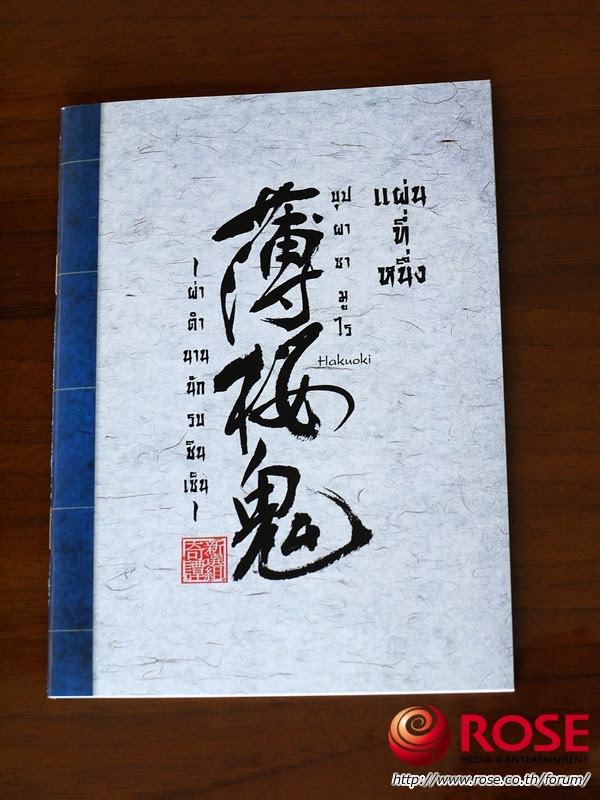 แผ่น
ที่
หนึ่ง
บุปผาซามูไร
薄桜鬼
Hakuoki
~ผ่าตำนานนักรบชินเซ็น~
新選組
奇譚
ROSE
MEDIA & ENTERTAINMENT
http://www.rose.co.th/forum/